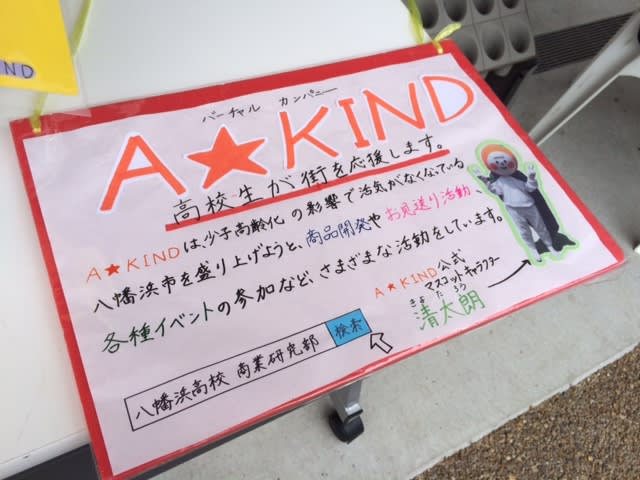 ND
バーチャル カンパニー
A★KIND
高校生が街を応援します。
A★KINDは、少子高齢化の影響で活気がなくなっている
八幡浜市を盛り上げようと、商品開発やお見送り活動、
各種イベントの参加など、さまざまな活動をしています。
A★KIND公式
マスコットキャラクター
きよたろう
清太朗
八幡浜高校 商業研究部 検索